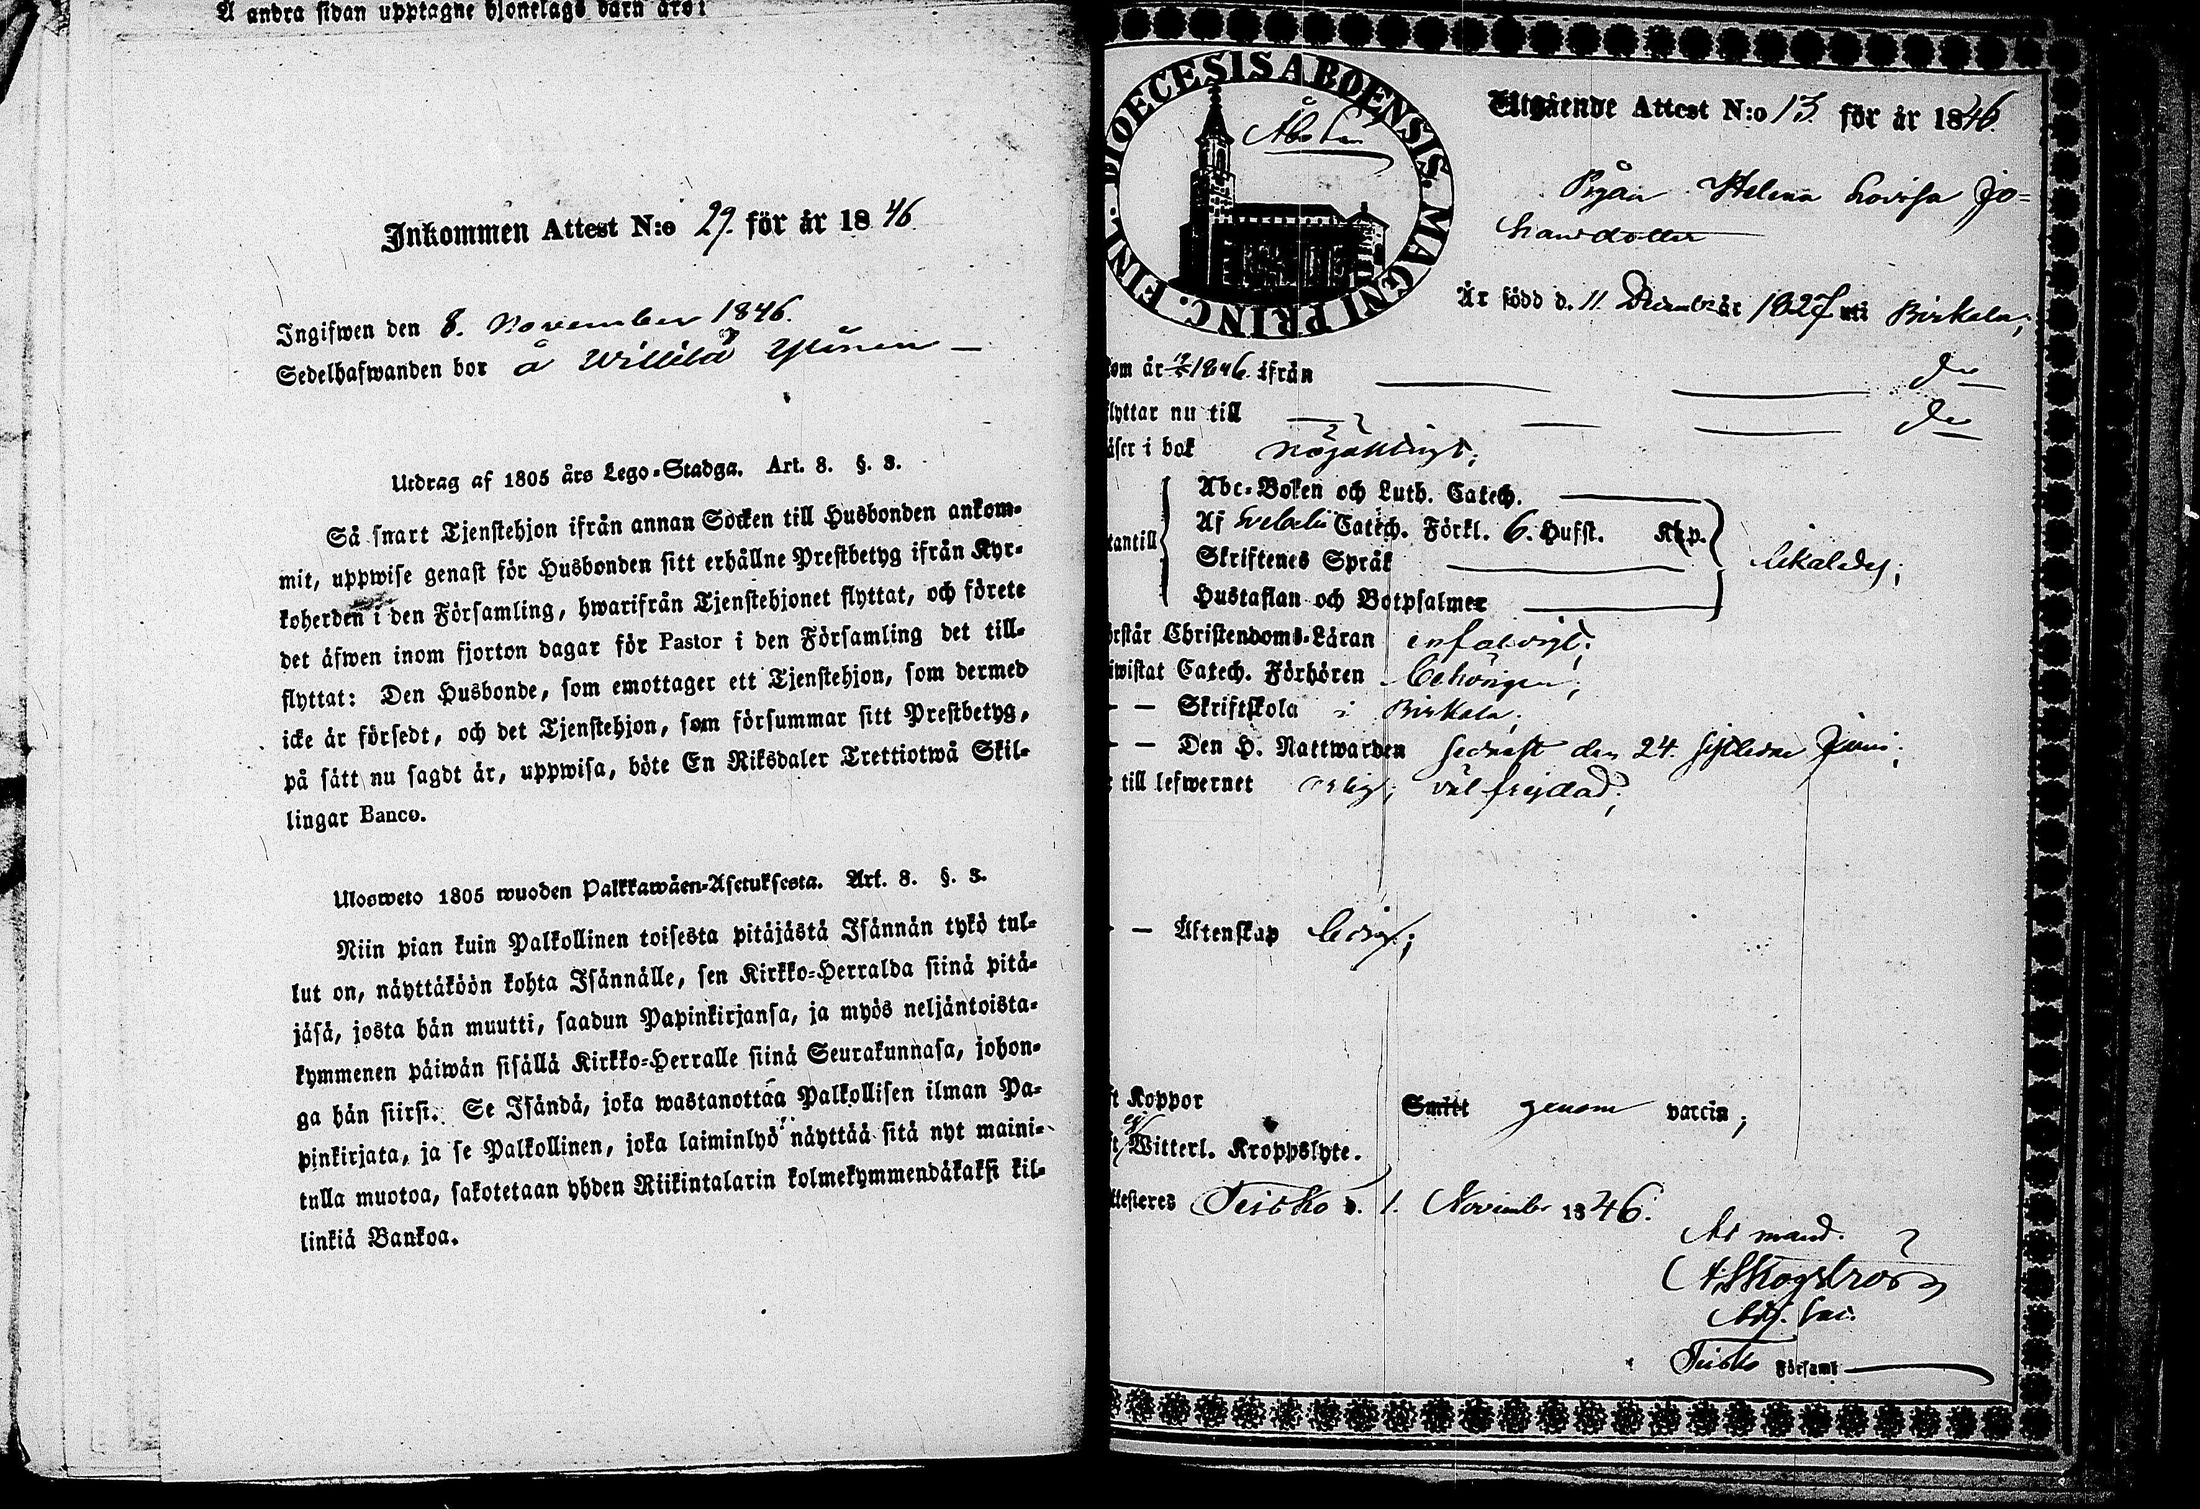 Å andra sidan upptagne hjonelags barn äro:
Inkommen Attest N:o 29. för år 1846.
Ingifwen den 8. November 1846.
Sedelhafwanden bor å Willilä Ylinen —
Utdrag af 1805 års Lego-Stadga. Art. 8. §. 3.
Så snart Tjenstehjon ifrån annan Socken till Husbonden ankom-
mit, uppwise genast för Husbonden sitt erhållne Prestbetyg ifrån Kyr-
koherden i den Församling, hwarifrån Tjenstehjonet flyttat, och förete
det äfwen inom fjorton dagar för Pastor i den Församling det till-
flyttat: Den Husbonde, som emottager ett Tjenstehjon, som dermed
icke är försedt, och det Tjenstehjon, som försummar sitt Prestbetyg,
på sätt nu sagdt är, uppwisa, böte En Riksdaler Trettiotwå Skil-
lingar Banco.
Ulosweto 1805 wuoden Palkkawäen-Asetuksesta. Art. 8. §. 3.
Niin pian kuin Palkollinen toisesta pitäjästä Isännän tykö tul-
lut on, näyttäköön kohta Isännälle, sen Kirkko-Herralda siinä pitä-
jäsä, josta hän muutti, saadun Papinkirjansa, ja myös neljäntoista-
kymmenen päiwän sisällä Kirkko-Herralle siinä Seurakunnasa, johon-
ga hän siirsi. Se Isändä, joka wastanottaa Palkollisen ilman Pa-
pinkirjata, ja se Palkollinen, joka laiminlyö näyttää sitä nyt maini-
tulla muotoa, sakotetaan yhden Riikintalarin kolmekymmendäkaksi kil-
linkiä Bankoa.
DIOECESIS ABOENSIS. MAGNI PRINC. FINL.
Åbo Län
Utgående Attest N:o 13. för år 1846.
Pigan Helena Lovisa Jo-
hansdotter
Är född d. 11 December år 1827 uti Birkala;
kom år 1846. ifrån — — do
flyttar nu till — — — do
läser i bok nöjaktligt;
Abc-Boken och Luth. Catech. —
Af Svebelii Catech. Förkl. 6. Hufst. Kap.
utantill Skriftenes Språk — likaledes;
Hustaflan och Botpsalmer —
förstår Christendoms-Läran enfaldigt;
biwistat Catech. Förhören behörigen;
— — Skriftskola i Birkala;
— — Den H. Nattwarden sednast den 24. sistledne Juni;
är till lefwernet ärlig; väl frejdad;
— — Äktenskap ledig;
haft Koppor Smitt genom vaccin;
ej Witterl. Kroppslyte.
Attesteras Teisko d. 1. November 1846.
Ad mand.
A Skogström
Adj. Sac.
Teisko Församl —